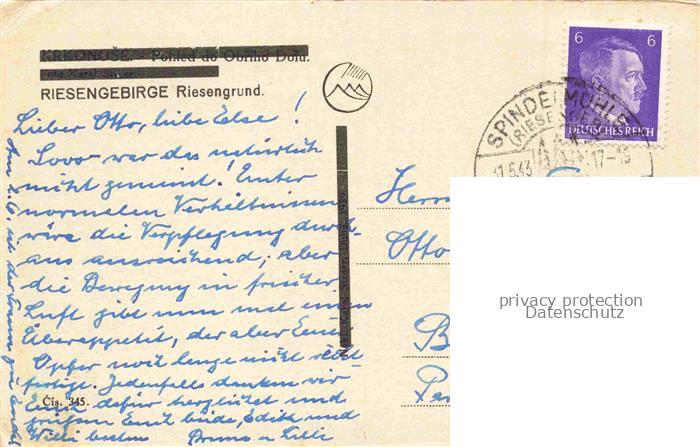 KRKONOŠE. – Pohled do Obřího Dolu.
Foto Karel Steier.
RIESENGEBIRGE Riesengrund.
Lieber Otto, liebe Else!
Sooo war das natürlich
nicht gemeint! Unter
normalen Verhältnissen
wäre die Verpflegung durch-
aus ausreichend; aber
die Bewegung in frischer
Luft gibt nun mal einen
Überappetit, der aber Eure
Opfer noch lange nicht recht-
fertigt. Jedenfalls danken wir
Euch dafür herzlichst und
grüßen Euch beide, Edith und
Willi bestens Bruno u Lilli
Am 2. 6. ist der Traum zu Ende!
Čís. 345.
6 6
DEUTSCHES REICH
SPINDELMÜHLE
(RIESENGEB)
17-18
Herrn
Otto
privacy protection
Datenschutz